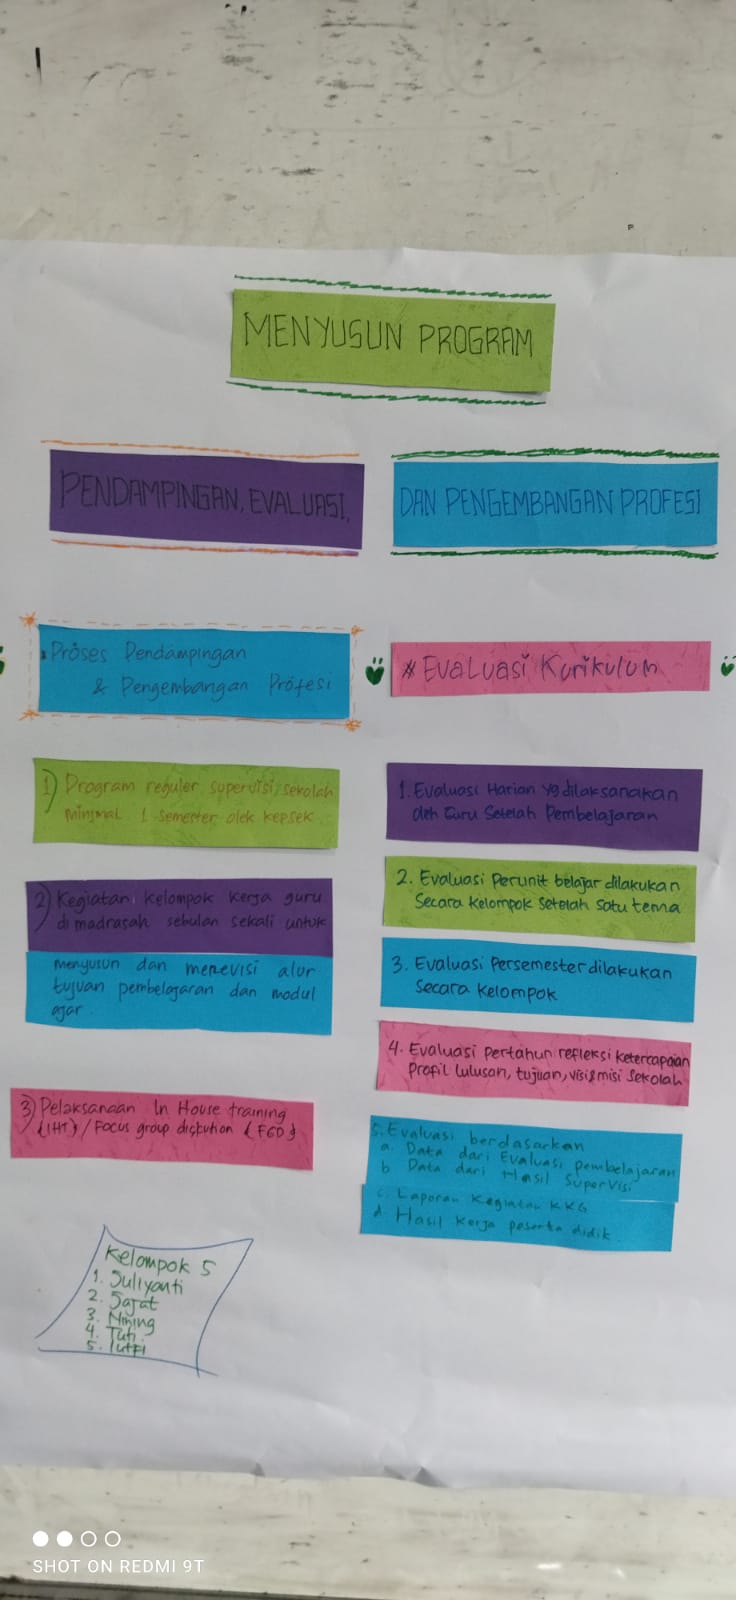 MENYUSUN PROGRAM
PENDAMPINGAN, EVALUASI,
DAN PENGEMBANGAN PROFESI
Proses Pendampingan
& Pengembangan Profesi
1) Program reguler supervisi sekolah
minimal 1 semester oleh kepsek
2) Kegiatan kelompok kerja guru
di madrasah sebulan sekali untuk
menyusun dan merevisi alur
tujuan pembelajaran dan modul
ajar.
3) Pelaksanaan In House training
(IHT) / Focus group diskution (FGD)
# Evaluasi Kurikulum
1. Evaluasi Harian yg dilaksanakan
oleh Guru Setelah Pembelajaran
2. Evaluasi Perunit belajar dilakukan
Secara Kelompok Setelah Satu tema
3. Evaluasi Persemester dilakukan
Secara Kelompok
4. Evaluasi Pertahun refleksi Ketercapaian
Profil Lulusan, tujuan, visi & misi Sekolah
5. Evaluasi berdasarkan
a. Data dari Evaluasi pembelajaran
b Data dari Hasil Supervisi
c. Laporan Kegiatan KKG
d. Hasil Kerja peserta didik
Kelompok 5
1. Suliyanti
2. Sajat
3. Nining
4. Tuti
5. lutfi
SHOT ON REDMI 9T